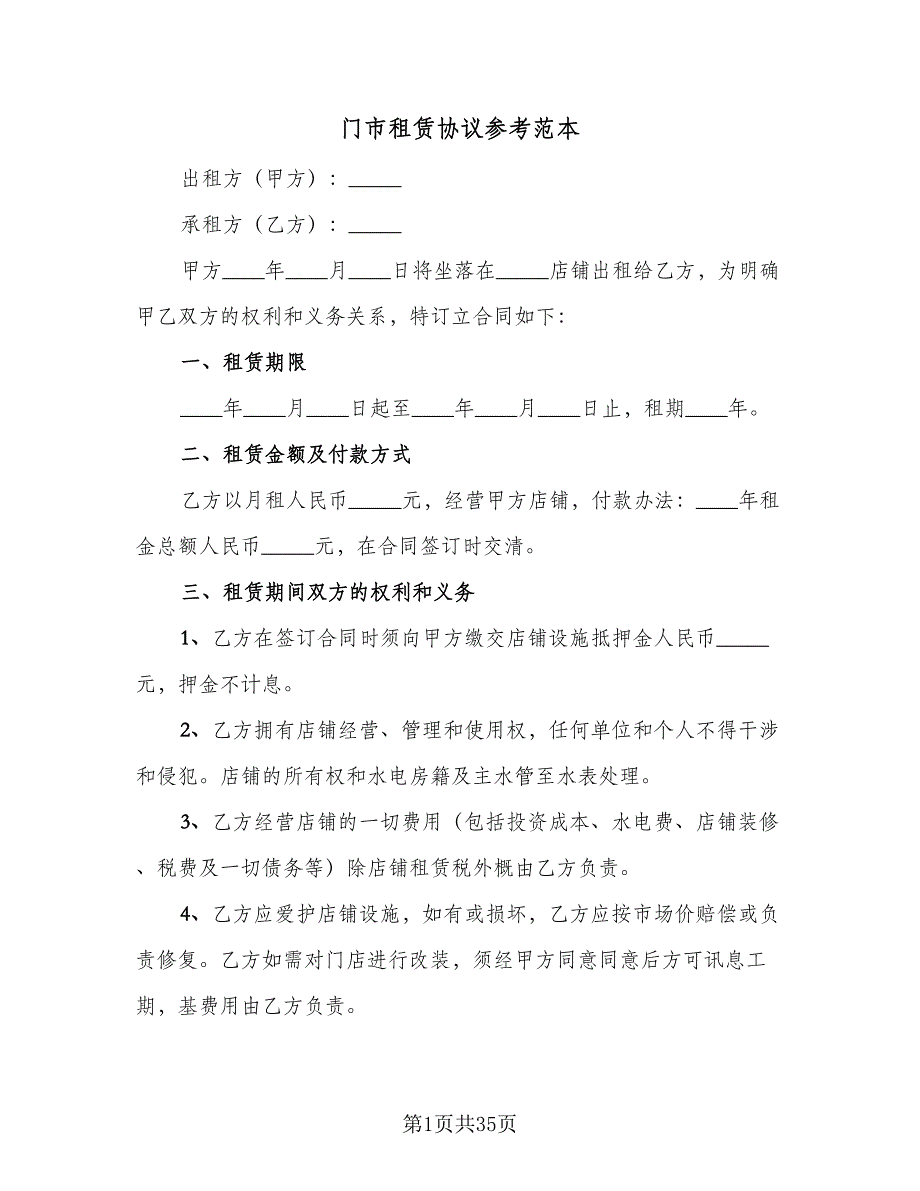 门市租赁协议参考范本
出租方（甲方）：_____
承租方（乙方）：_____
甲方____年____月____日将坐落在_____店铺出租给乙方，为明确
甲乙双方的权利和义务关系，特订立合同如下：
一、租赁期限
____年____月____日起至____年____月____日止，租期____年。
二、租赁金额及付款方式
乙方以月租人民币_____元，经营甲方店铺，付款办法：____年租
金总额人民币_____元，在合同签订时交清。
三、租赁期间双方的权利和义务
1、乙方在签订合同时须向甲方缴交店铺设施抵押金人民币_____
元，押金不计息。
2、乙方拥有店铺经营、管理和使用权，任何单位和个人不得干涉
和侵犯。店铺的所有权和水电房籍及主水管至水表处理。
3、乙方经营店铺的一切费用（包括投资成本、水电费、店铺装修
、税费及一切债务等）除店铺租赁税外概由乙方负责。
4、乙方应爱护店铺设施，如有或损坏，乙方应按市场价赔偿或负
责修复。乙方如需对门店进行改装，须经甲方同意同意后方可讯息工
期，基费用由乙方负责。
第1页共35页